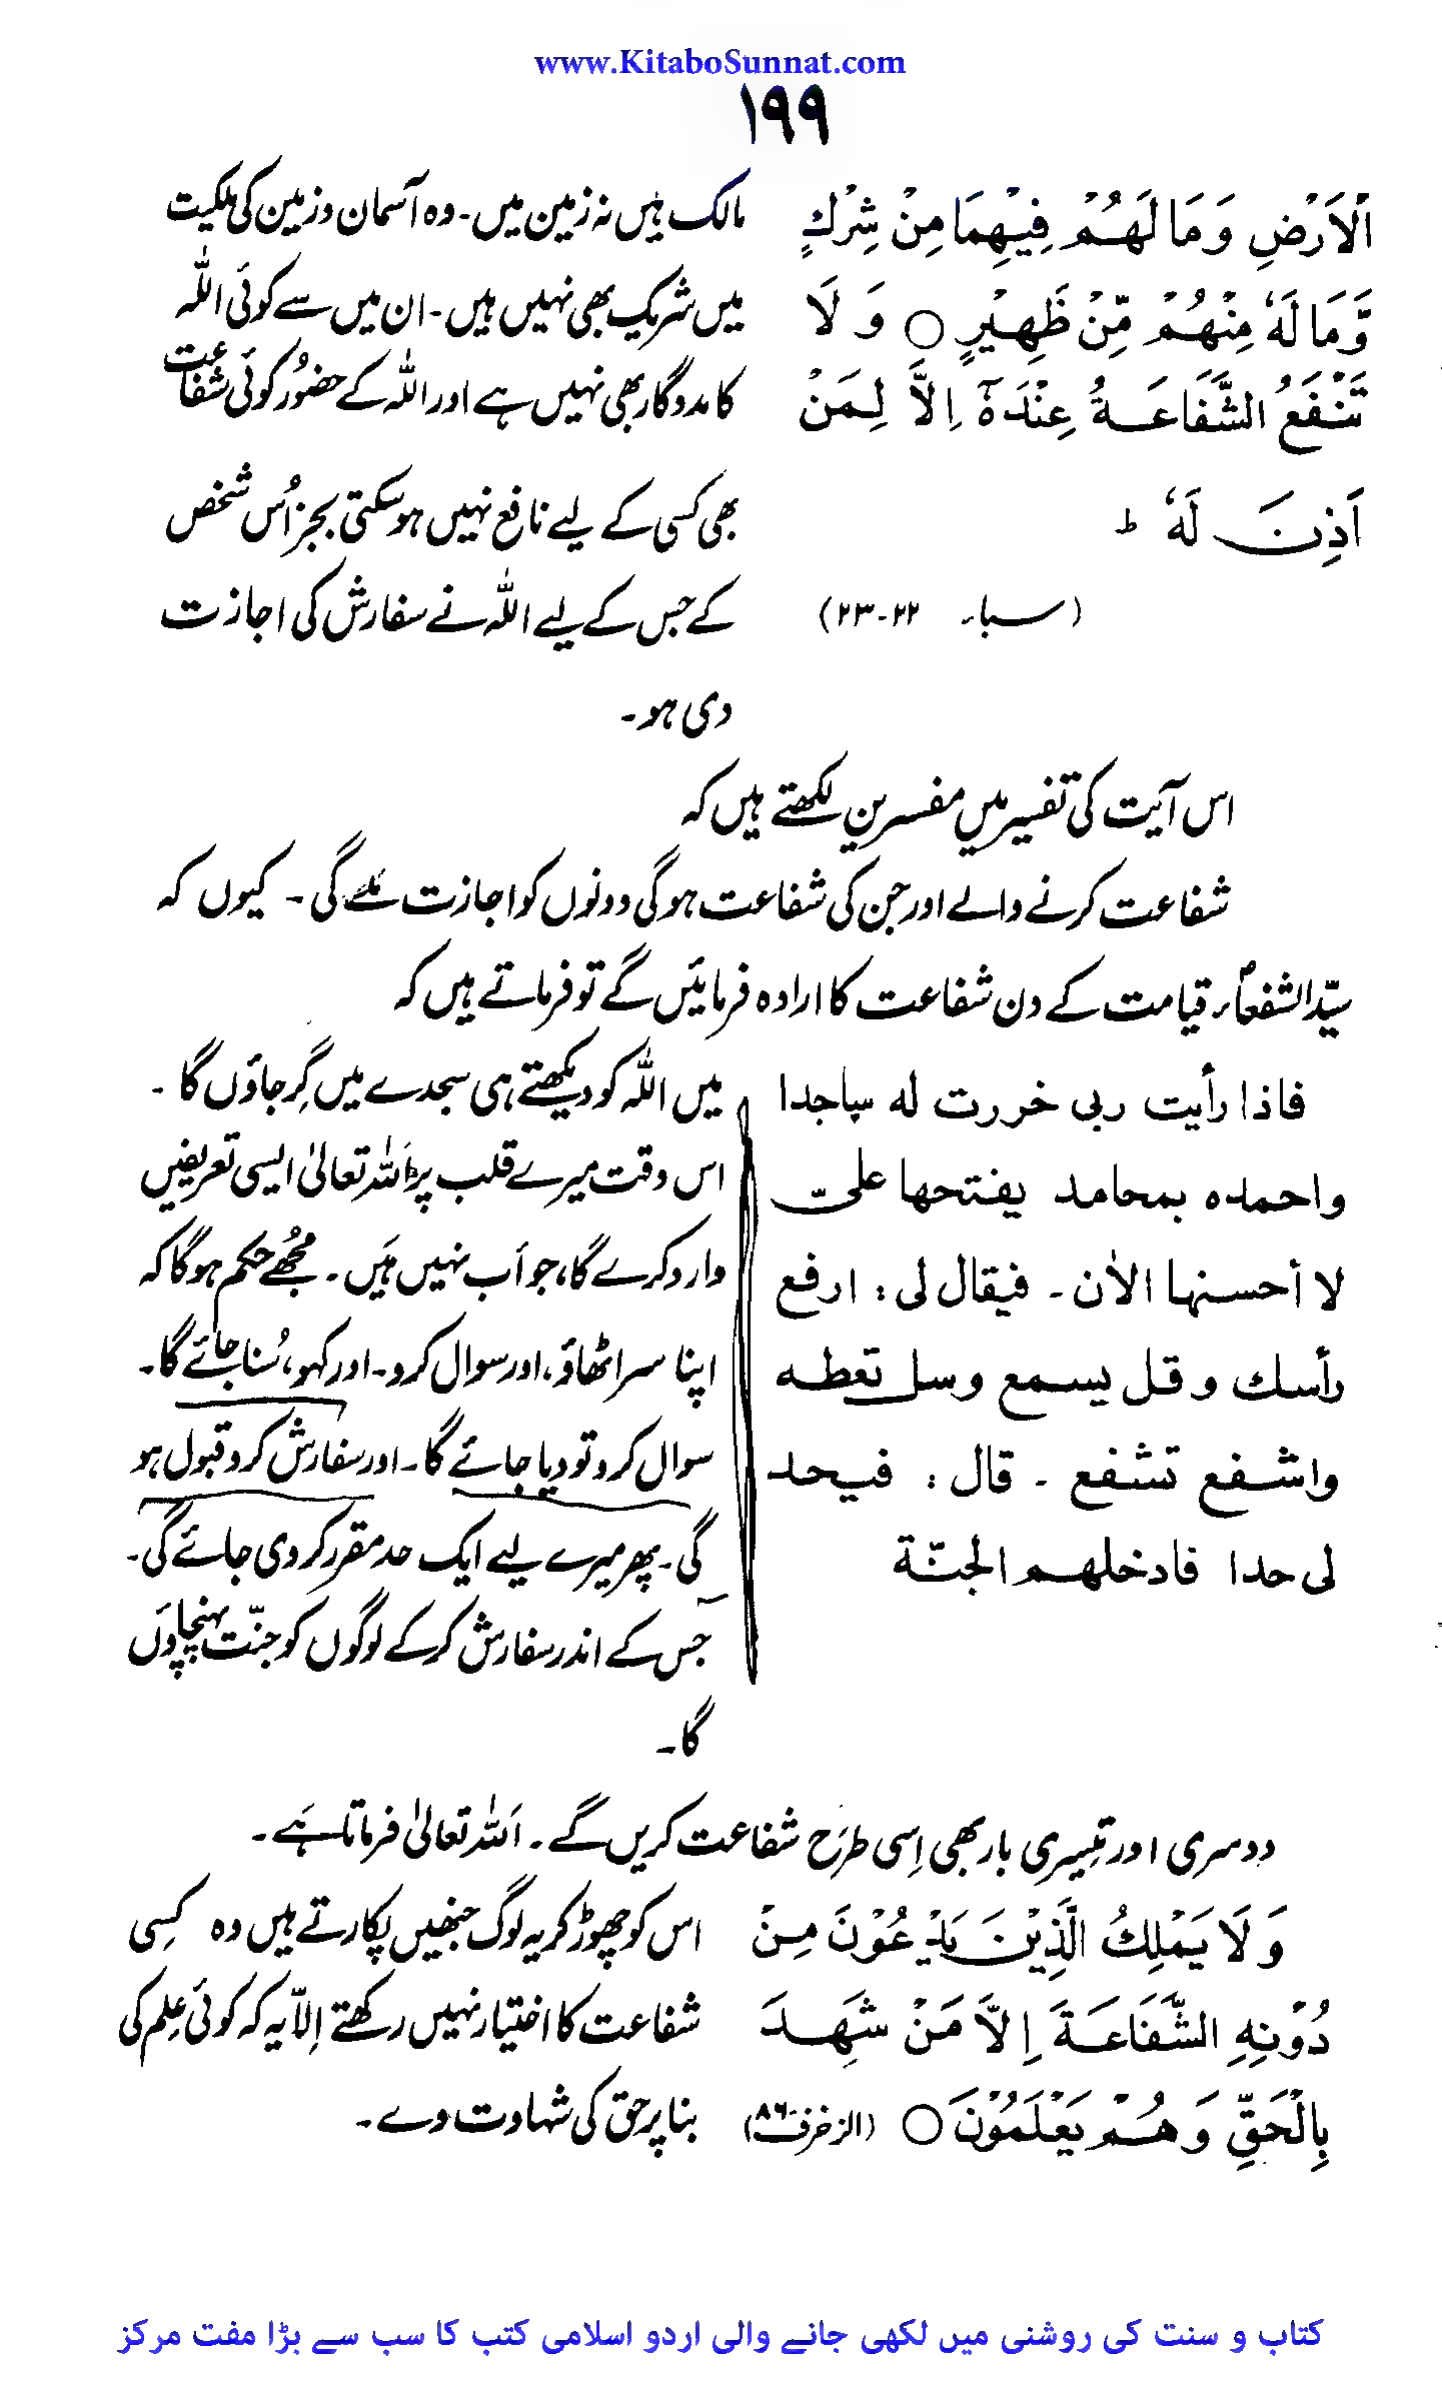 www.KitaboSunnat.com
۱۹۹
اَلْاَرْضِ وَمَا لَهُمْ فِيْهِمَا مِنْ شِرْكٍ
وَّمَا لَهٗ مِنْهُمْ مِّنْ ظَهِيْرٍ ○ وَ لَا
تَنْفَعُ الشَّفَاعَةُ عِنْدَهٗٓ اِلَّا لِمَنْ
اَذِنَ لَهٗ ط
(سبا۔ ۲۲-۲۳)
مالک ہیں نہ زمین میں۔ وہ آسمان و زمین کی ملکیت
میں شریک بھی نہیں ہیں۔ ان میں سے کوئی اللہ
کا مددگار بھی نہیں ہے اور اللہ کے حضور کوئی شفاعت
بھی کسی کے لیے نافع نہیں ہو سکتی بجز اُس شخص
کے جس کے لیے اللہ نے سفارش کی اجازت
دی ہو۔
اس آیت کی تفسیر میں مفسرین لکھتے ہیں کہ
شفاعت کرنے والے اور جن کی شفاعت ہوگی دونوں کو اجازت ملے گی۔ کیوں کہ
سیّد الشفعاءؐ قیامت کے دن شفاعت کا ارادہ فرمائیں گے تو فرماتے ہیں کہ
فاذا رأيت ربى خررت له ساجدا
واحمده بمحامد يفتحها علىّ
لا أحسنها الأن ـ فيقال لى : ارفع
رأسك و قل يسمع وسل تعطه
واشفع تشفع ـ قال : فيحد
لى حدا فادخلهم الجنّة
میں اللہ کو دیکھتے ہی سجدے میں گِر جاؤں گا۔
اس وقت میرے قلب پر اللہ تعالیٰ ایسی تعریفیں
وارد کرے گا، جو اَب نہیں ہَیں۔ مجُھے حکم ہوگا کہ
اپنا سر اٹھاؤ، اور سوال کرو۔ اور کہو، سُنا جائے گا۔
سوال کرو تو دیا جائے گا۔ اور سفارش کرو قبول ہو
گی۔ پھر میرے لیے ایک حد مقرر کر دی جائے گی۔
جس کے اندر سفارش کرکے لوگوں کو جنّت پہنچاؤں
گا۔
دوسری اور تیسری بار بھی اِسی طرَح شفاعت کریں گے۔ اَللہ تعالیٰ فرماتا ہَے۔
وَلَا يَمْلِكُ الَّذِيْنَ يَدْعُوْنَ مِنْ
دُوْنِهِ الشَّفَاعَةَ اِلَّا مَنْ شَهِدَ
بِالْحَقِّ وَهُمْ يَعْلَمُوْنَ ○ (الزخرف-۸۶)
اس کو چھوڑ کر یہ لوگ جنھیں پکارتے ہیں وہ کسِی
شفاعت کا اختیار نہیں رکھتے اِلاّ یہ کہ کوئی عِلم کی
بنا پر حق کی شہادت دے۔
کتاب و سنت کی روشنی میں لکھی جانے والی اردو اسلامی کتب کا سب سے بڑا مفت مرکز